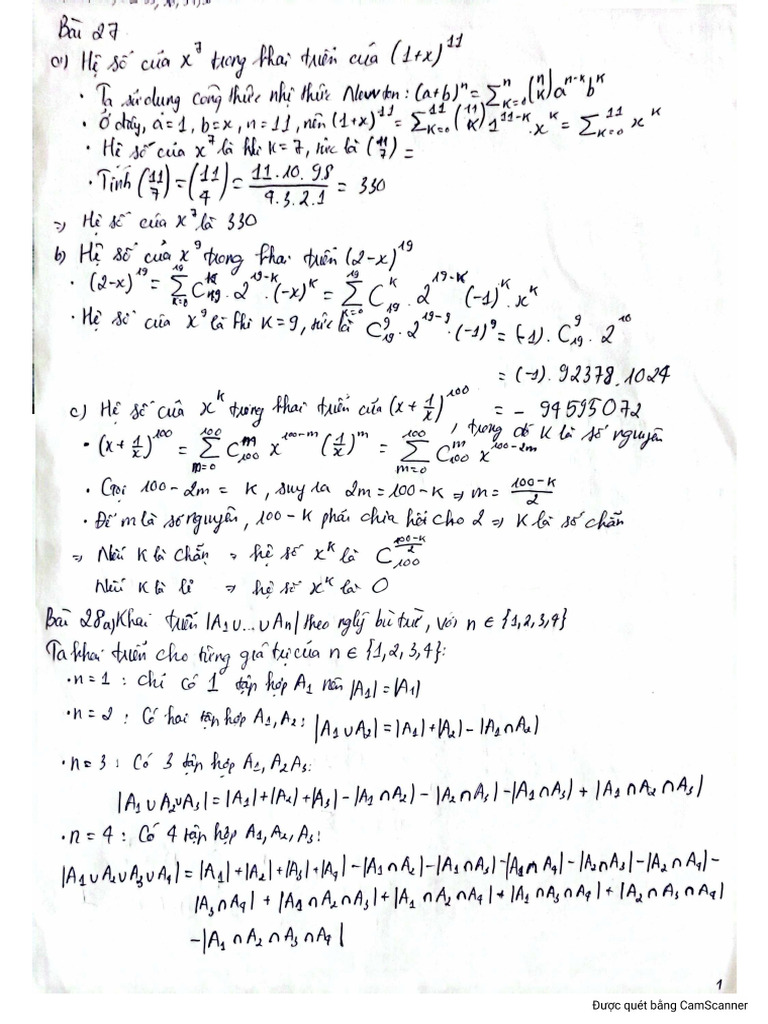 Bài 27
a) Hệ số của x^7 trong khai triển của (1+x)^11
• Ta sử dụng công thức nhị thức Newton: (a+b)^n = ∑_{K=0}^n (n K) a^{n-k} b^k
• Ở đây, a=1, b=x, n=11, nên (1+x)^11 = ∑_{K=0}^11 (11 K) 1^{11-K} . x^K = ∑_{K=0}^11 x^K
• Hệ số của x^7 là khi K=7, tức là (11 7) =
• Tính (11 7) = (11 4) = 11.10.9.8 / 4.3.2.1 = 330
⇒ Hệ số của x^7 là 330
b) Hệ số của x^9 trong khai triển (2-x)^19
• (2-x)^19 = ∑_{K=0}^19 C_19^K . 2^{19-K} . (-x)^K = ∑_{K=0}^19 C_19^K . 2^{19-K} (-1)^K . x^K
• Hệ số của x^9 là khi K=9, tức là C_19^9 . 2^{19-9} . (-1)^9 = (-1) . C_19^9 . 2^10
= (-1) . 92378 . 1024
= - 94595072
c) Hệ số của x^K trong khai triển của (x + 1/x)^100, trong đó K là số nguyên
• (x + 1/x)^100 = ∑_{m=0}^100 C_100^m x^{100-m} (1/x)^m = ∑_{m=0}^100 C_100^m x^{100-2m}
• Gọi 100-2m = K, suy ra 2m = 100-K ⇒ m = (100-K)/2
• Để m là số nguyên, 100-K phải chia hết cho 2 ⇒ K là số chẵn
⇒ Nếu K là chẵn ⇒ hệ số x^K là C_100^{(100-K)/2}
Nếu K là lẻ ⇒ hệ số x^K là 0
Bài 28 a) Khai triển |A1∪...∪An| theo nglý bù trừ, với n ∈ {1,2,3,4}
Ta khai triển cho từng giá trị của n ∈ {1,2,3,4}:
• n=1 : chỉ có 1 tập hợp A1 nên |A1|=|A1|
• n=2 : Có hai tập hợp A1, A2: |A1∪A2|=|A1|+|A2|-|A1∩A2|
• n=3 : Có 3 tập hợp A1, A2 A3:
|A1∪A2∪A3|=|A1|+|A2|+|A3|-|A1∩A2|-|A2∩A3|-|A1∩A3|+|A1∩A2∩A3|
• n=4 : Có 4 tập hợp A1, A2, A3:
|A1∪A2∪A3∪A4|=|A1|+|A2|+|A3|+|A4|-|A1∩A2|-|A1∩A3|-|A1∩A4|-|A2∩A3|-|A2∩A4|-
|A3∩A4|+|A1∩A2∩A3|+|A1∩A2∩A4|+|A1∩A3∩A4|+|A2∩A3∩A4|
-|A1∩A2∩A3∩A4|
1
Được quét bằng CamScanner